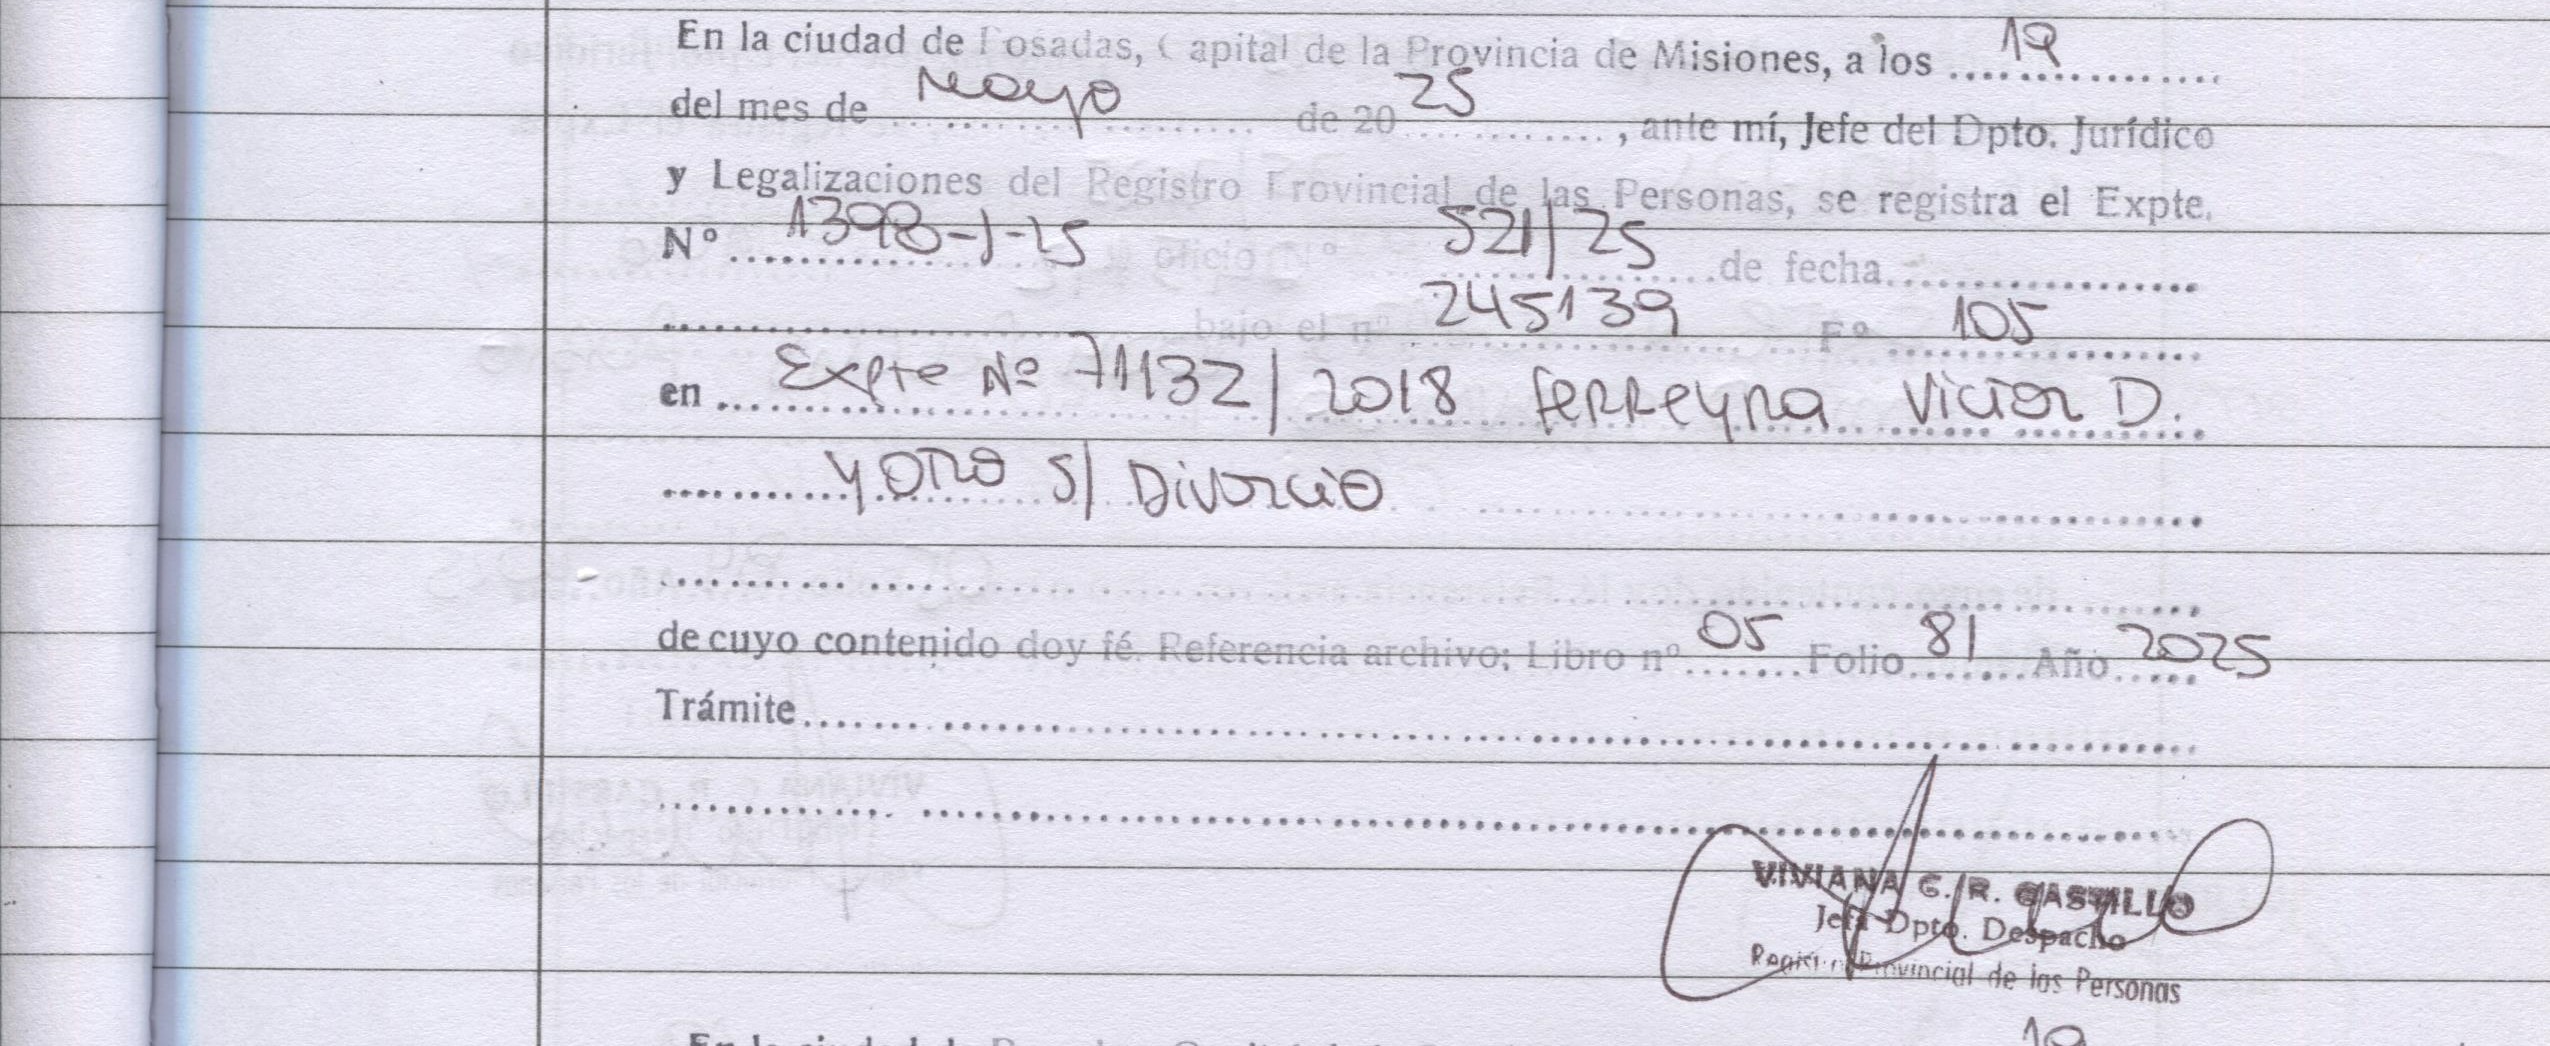 En la ciudad de Posadas, Capital de la Provincia de Misiones, a los 19
del mes de Mayo de 20 25, ante mí, Jefe del Dpto. Jurídico
y Legalizaciones del Registro Provincial de las Personas, se registra el Expte.
Nº 1398-J-25 oficio Nº 521/25 de fecha
bajo el nº 245139 Fº 105
en Expte Nº 71132/2018 Ferreyra Victor D.
y otro s/ Divorcio
de cuyo contenido doy fé. Referencia archivo: Libro nº 05 Folio 81 Año 2025
Trámite
VIVIANA G. R. CASTILLO
Jefa Dpto. Despacho
Registro Provincial de las Personas